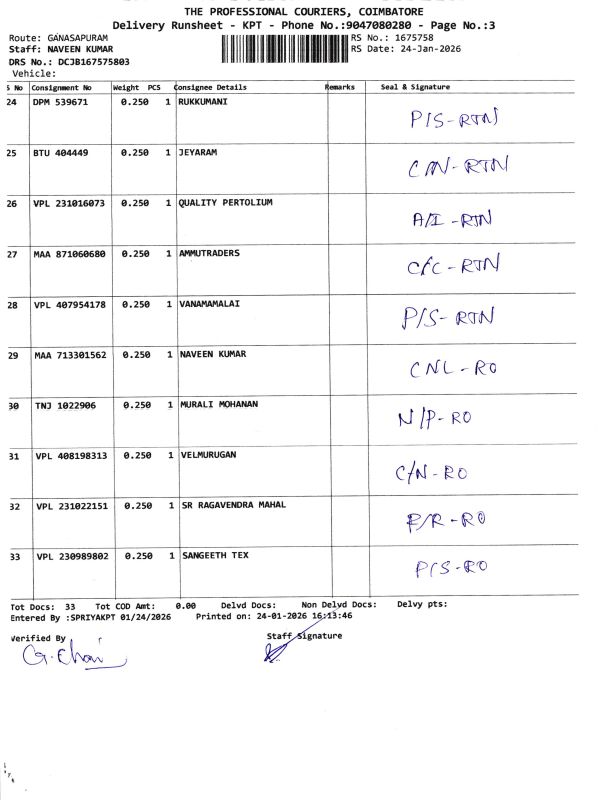 THE PROFESSIONAL COURIERS, COIMBATORE
Delivery Runsheet - KPT - Phone No.:9047080280 - Page No.:3
Route: GANASAPURAM RS No.: 1675758
Staff: NAVEEN KUMAR RS Date: 24-Jan-2026
DRS No.: DCJB167575803
Vehicle:
S No Consignment No Weight PCS Consignee Details Remarks Seal & Signature
24 DPM 539671 0.250 1 RUKKUMANI P/S-RTN
25 BTU 404449 0.250 1 JEYARAM C/N-RTN
26 VPL 231016073 0.250 1 QUALITY PERTOLIUM A/I-RTN
27 MAA 871060680 0.250 1 AMMUTRADERS C/C-RTN
28 VPL 407954178 0.250 1 VANAMAMALAI P/S-RTN
29 MAA 713301562 0.250 1 NAVEEN KUMAR CNL-RO
30 TNJ 1022906 0.250 1 MURALI MOHANAN N/P-RO
31 VPL 408198313 0.250 1 VELMURUGAN C/N-RO
32 VPL 231022151 0.250 1 SR RAGAVENDRA MAHAL R/R-RO
33 VPL 230989802 0.250 1 SANGEETH TEX P/S-RO
Tot Docs: 33 Tot COD Amt: 0.00 Delvd Docs: Non Delvd Docs: Delvy pts:
Entered By :SPRIYAKPT 01/24/2026 Printed on: 24-01-2026 16:13:46
Verified By Staff Signature